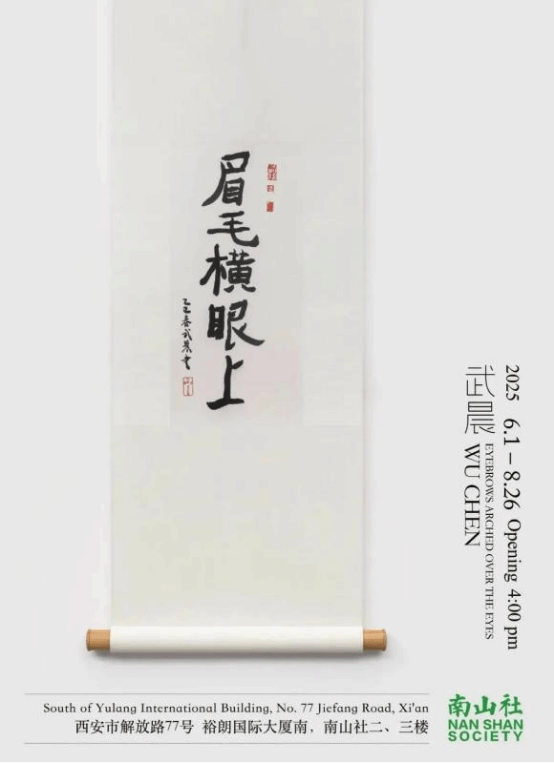 眉毛横眼上
乙巳春武晨書
2025 6.1 – 8.26 Opening 4:00 pm
武晨
EYEBROWS ARCHED OVER THE EYES
WU CHEN
South of Yulang International Building, No. 77 Jiefang Road, Xi'an
西安市解放路77号 裕朗国际大厦南，南山社二、三楼
南山社
NAN SHAN
SOCIETY